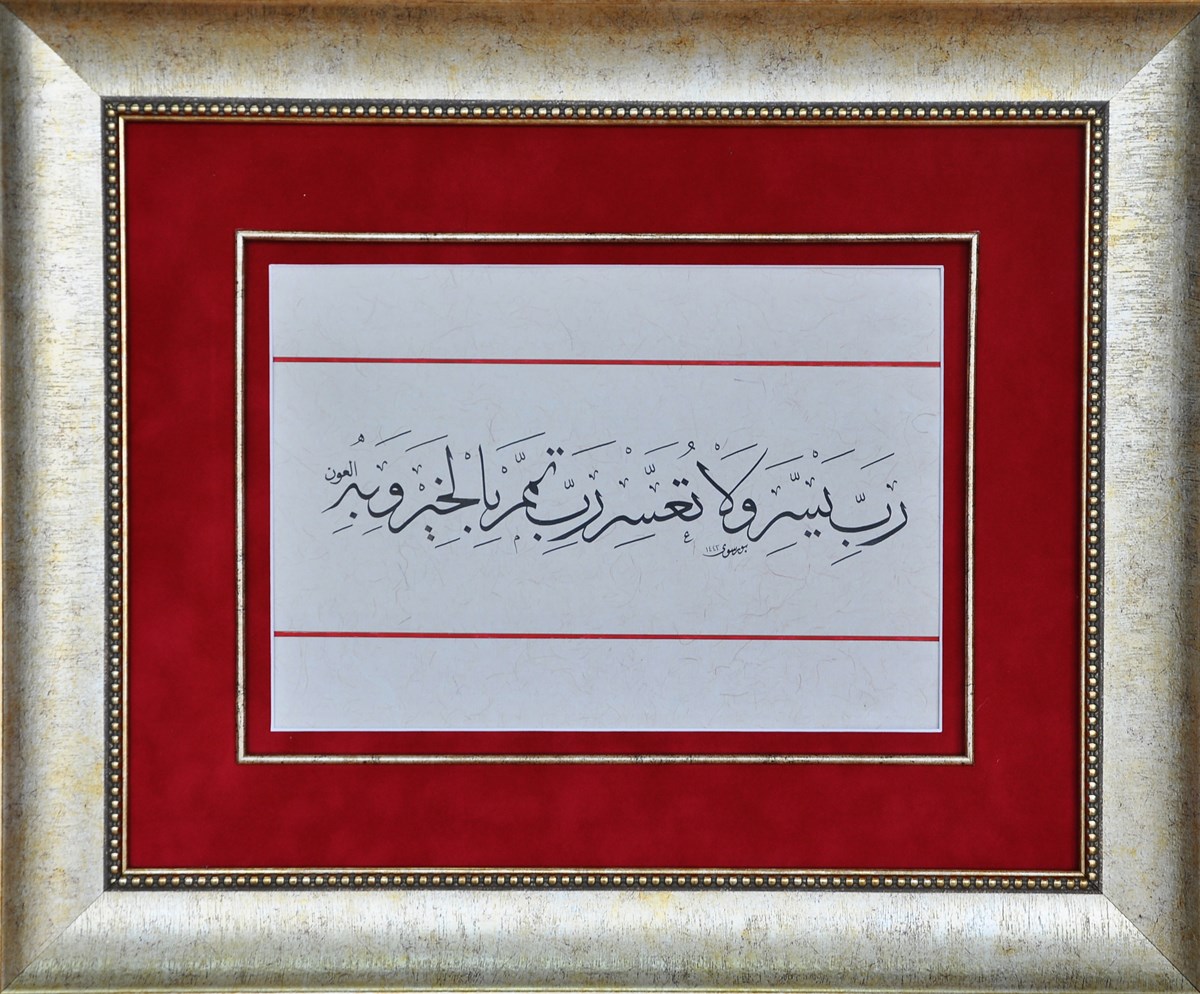 رَبِّ يَسِّرْ وَلَا تُعَسِّرْ رَبِّ تَمِّمْ بِالْخَيْرِ وَبِهِ الْعَوْنُ
بورسوى ١٤٤٢